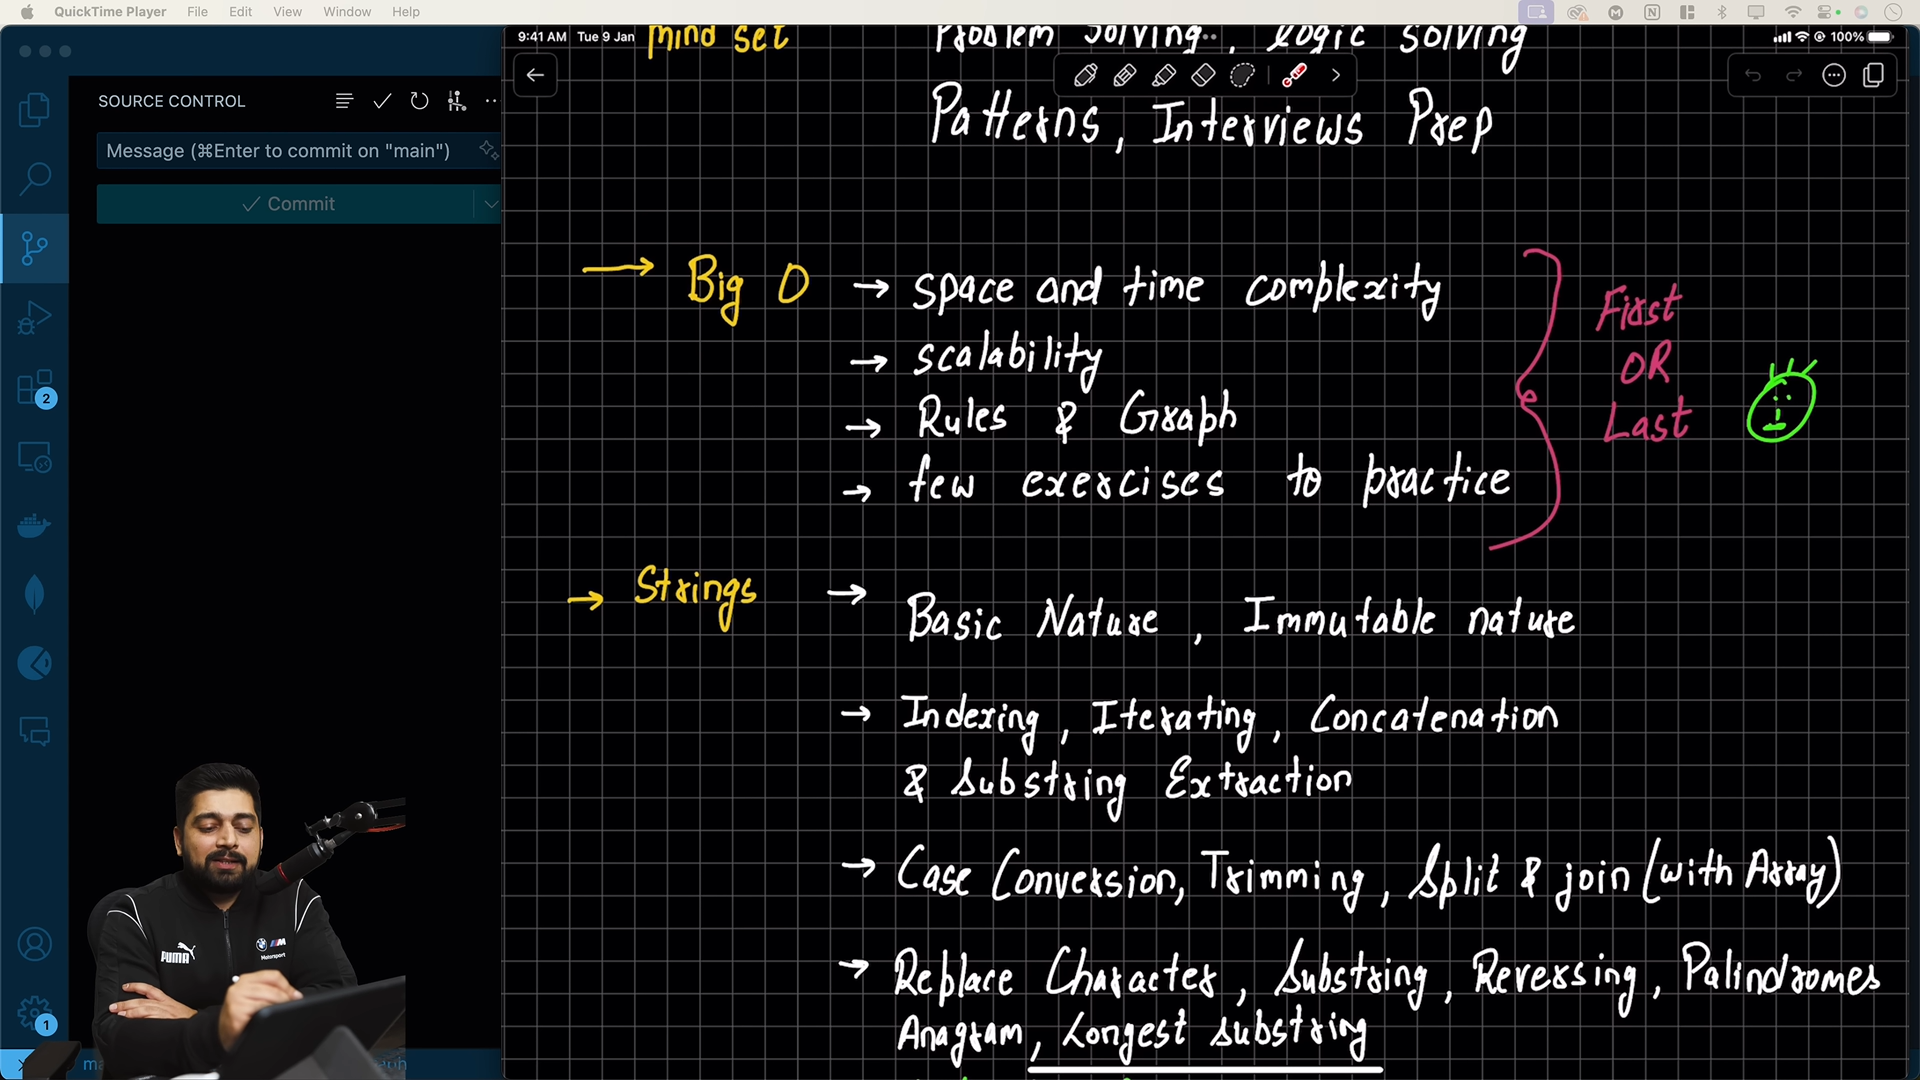 QuickTime Player File Edit View Window Help
9:41 AM Tue 9 Jan
100%
SOURCE CONTROL
Message (⌘Enter to commit on "main")
Commit
2
1
Mind set
Problem Solving, Logic Solving
Patterns, Interviews Prep
Big O → space and time complexity
→ scalability
→ Rules & Graph
→ few exercises to practice
First
OR
Last
→ Strings → Basic Nature, Immutable nature
→ Indexing, Iterating, Concatenation
& Substring Extraction
→ Case Conversion, Trimming, Split & join (with Array)
→ Replace Character, Substring, Reversing, Palindromes
Anagram, Longest substring
PUMA
BMW M
Motorsport